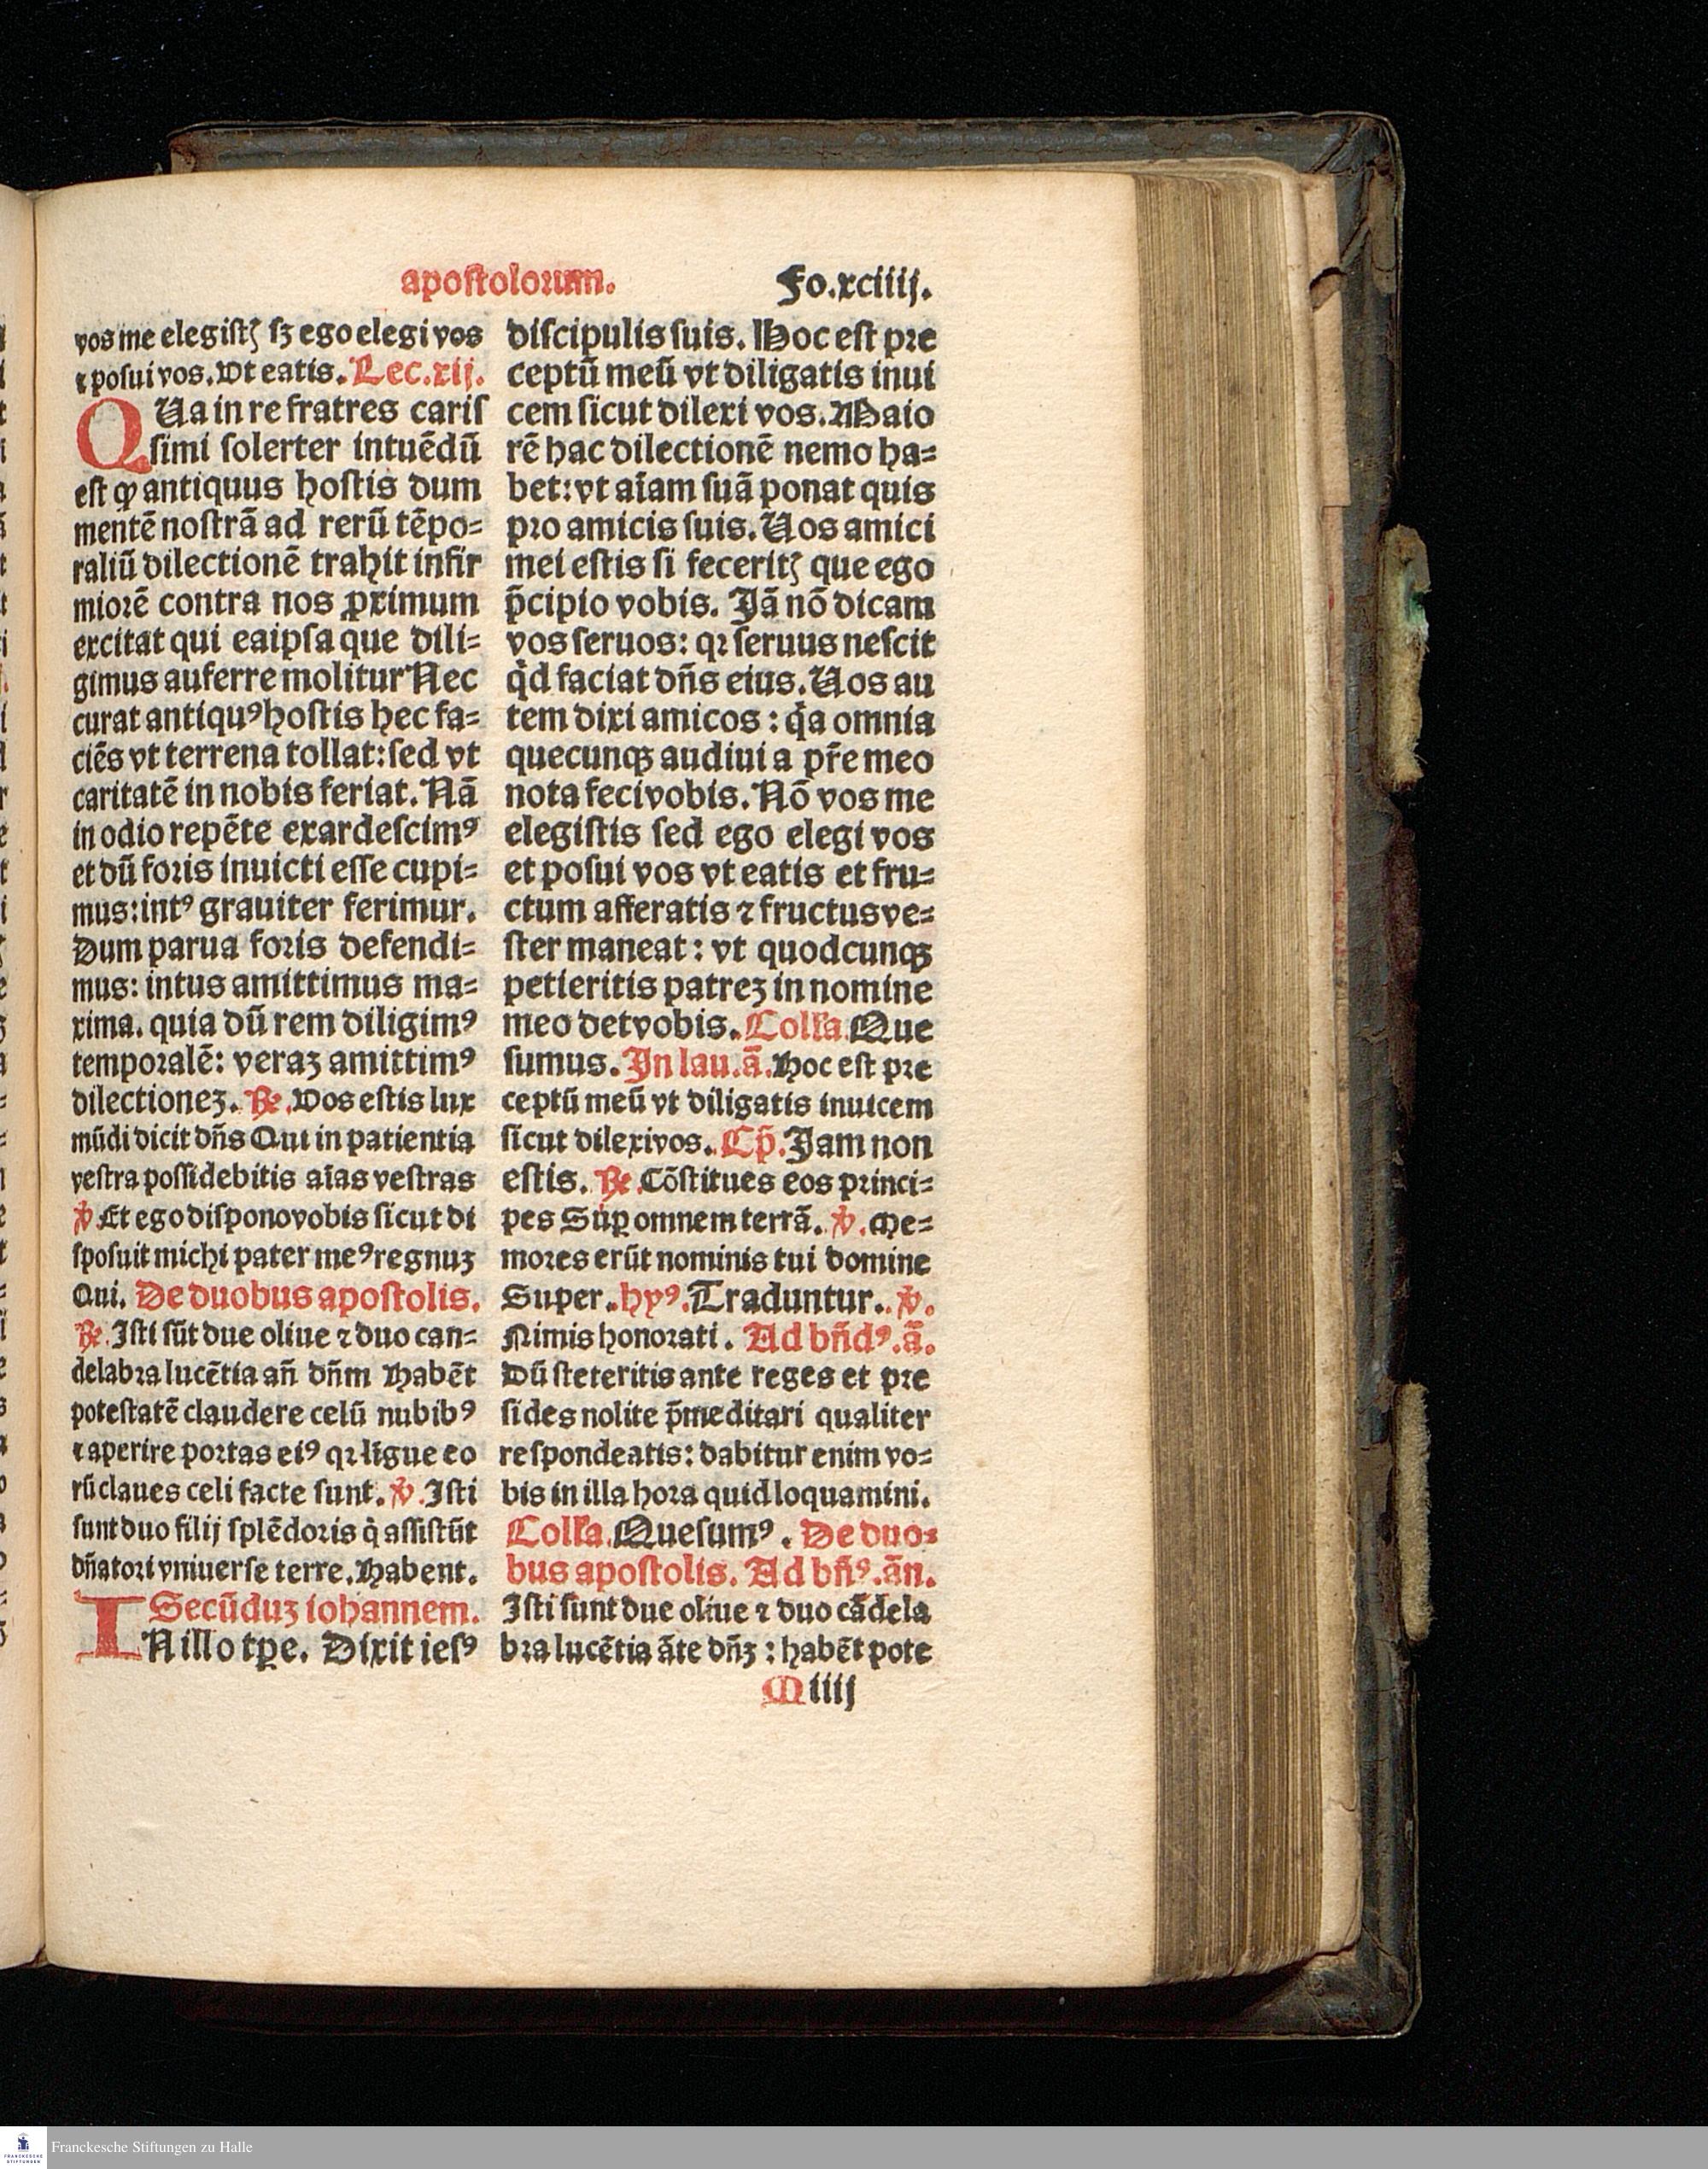 apostolorum. Fo.xciiij.
vos me elegistꝭ sꝫ ego elegi vos
⁊ posui vos. Vt eatis. Lec. xij.
QUa in re fratres caris
simi solerter intuēdū
est ꝙ antiquus hostis dum
mentē nostrā ad rerū tēpo⸗
raliū dilectionē trahit infir
miorē contra nos ꝓximum
excitat qui ea ipsa que dili⸗
gimus auferre molitur Nec
curat antiquꝰ hostis hec fa⸗
ciēs vt terrena tollat: sed vt
caritatē in nobis feriat. Nā
in odio repēte exardescimꝰ
et dū foris inuicti esse cupi⸗
mus: intꝰ grauiter ferimur.
Dum parua foris defendi⸗
mus: intus amittimus ma⸗
xima. quia dū rem diligimꝰ
temporalē: veraꝫ amittimꝰ
dilectioneꝫ. ℞. Vos estis lux
mūdi dicit dn̄s Qui in patientia
vestra possidebitis aīas vestras
℣ Et ego dispono vobis sicut di
sposuit michi pater meꝰ regnuꝫ
Qui. De duobus apostolis.
℞. Isti sūt due oliue ⁊ duo can⸗
delabra lucētia an̄ dn̄m Habēt
potestatē claudere celū nubibꝰ
⁊ aperire portas eiꝰ qꝛ līgue eo
rū claues celi facte sunt. ℣. Isti
sunt duo filij splēdoris q̇ assistūt
dn̄atori vniuerse terre. Habent.
Secūduꝫ iohannem.
INillo tꝑe. Dixit iesꝰ
discipulis suis. Hoc est pre
ceptū meū vt diligatis inui
cem sicut dilexi vos. Maio
rē hac dilectionē nemo ha⸗
bet: vt aīam suā ponat quis
pro amicis suis. Uos amici
mei estis si feceritꝭ que ego
p̄cipio vobis. Jā nō dicam
vos seruos: qꝛ seruus nescit
qͥd faciat dn̄s eius. Uos au
tem dixi amicos: qͥa omnia
quecunqꝫ audiui a pr̄e meo
nota feci vobis. Nō vos me
elegistis sed ego elegi vos
et posui vos vt eatis et fru⸗
ctum afferatis ⁊ fructus ve⸗
ster maneat: vt quodcunqꝫ
petieritis patreꝫ in nomine
meo det vobis. Coll'a. Que
sumus. In lau. ā. Hoc est pre
ceptū meū vt diligatis inuicem
sicut dilexi vos. Cp̄. Jam non
estis. ℞. Cōstitues eos princi⸗
pes Suꝑ omnem terrā. ℣. Me⸗
mores erūt nominis tui domine
Super. hyꝰ. Traduntur. ℣.
Nimis honorati. Ad bn̄dꝰ. ā.
Dū steteritis ante reges et pre
sides nolite p̄meditari qualiter
respondeatis: dabitur enim vo⸗
bis in illa hora quid loquamini.
Coll'a. Quesumꝰ. De duo⸗
bus apostolis. Ad bn̄ꝰ. ān.
Isti sunt due oliue ⁊ duo cādela
bra lucētia āte dn̄ꝫ: habēt pote
M iiij
Franckesche Stiftungen zu Halle
FRANCKESCHE
STIFTUNGEN